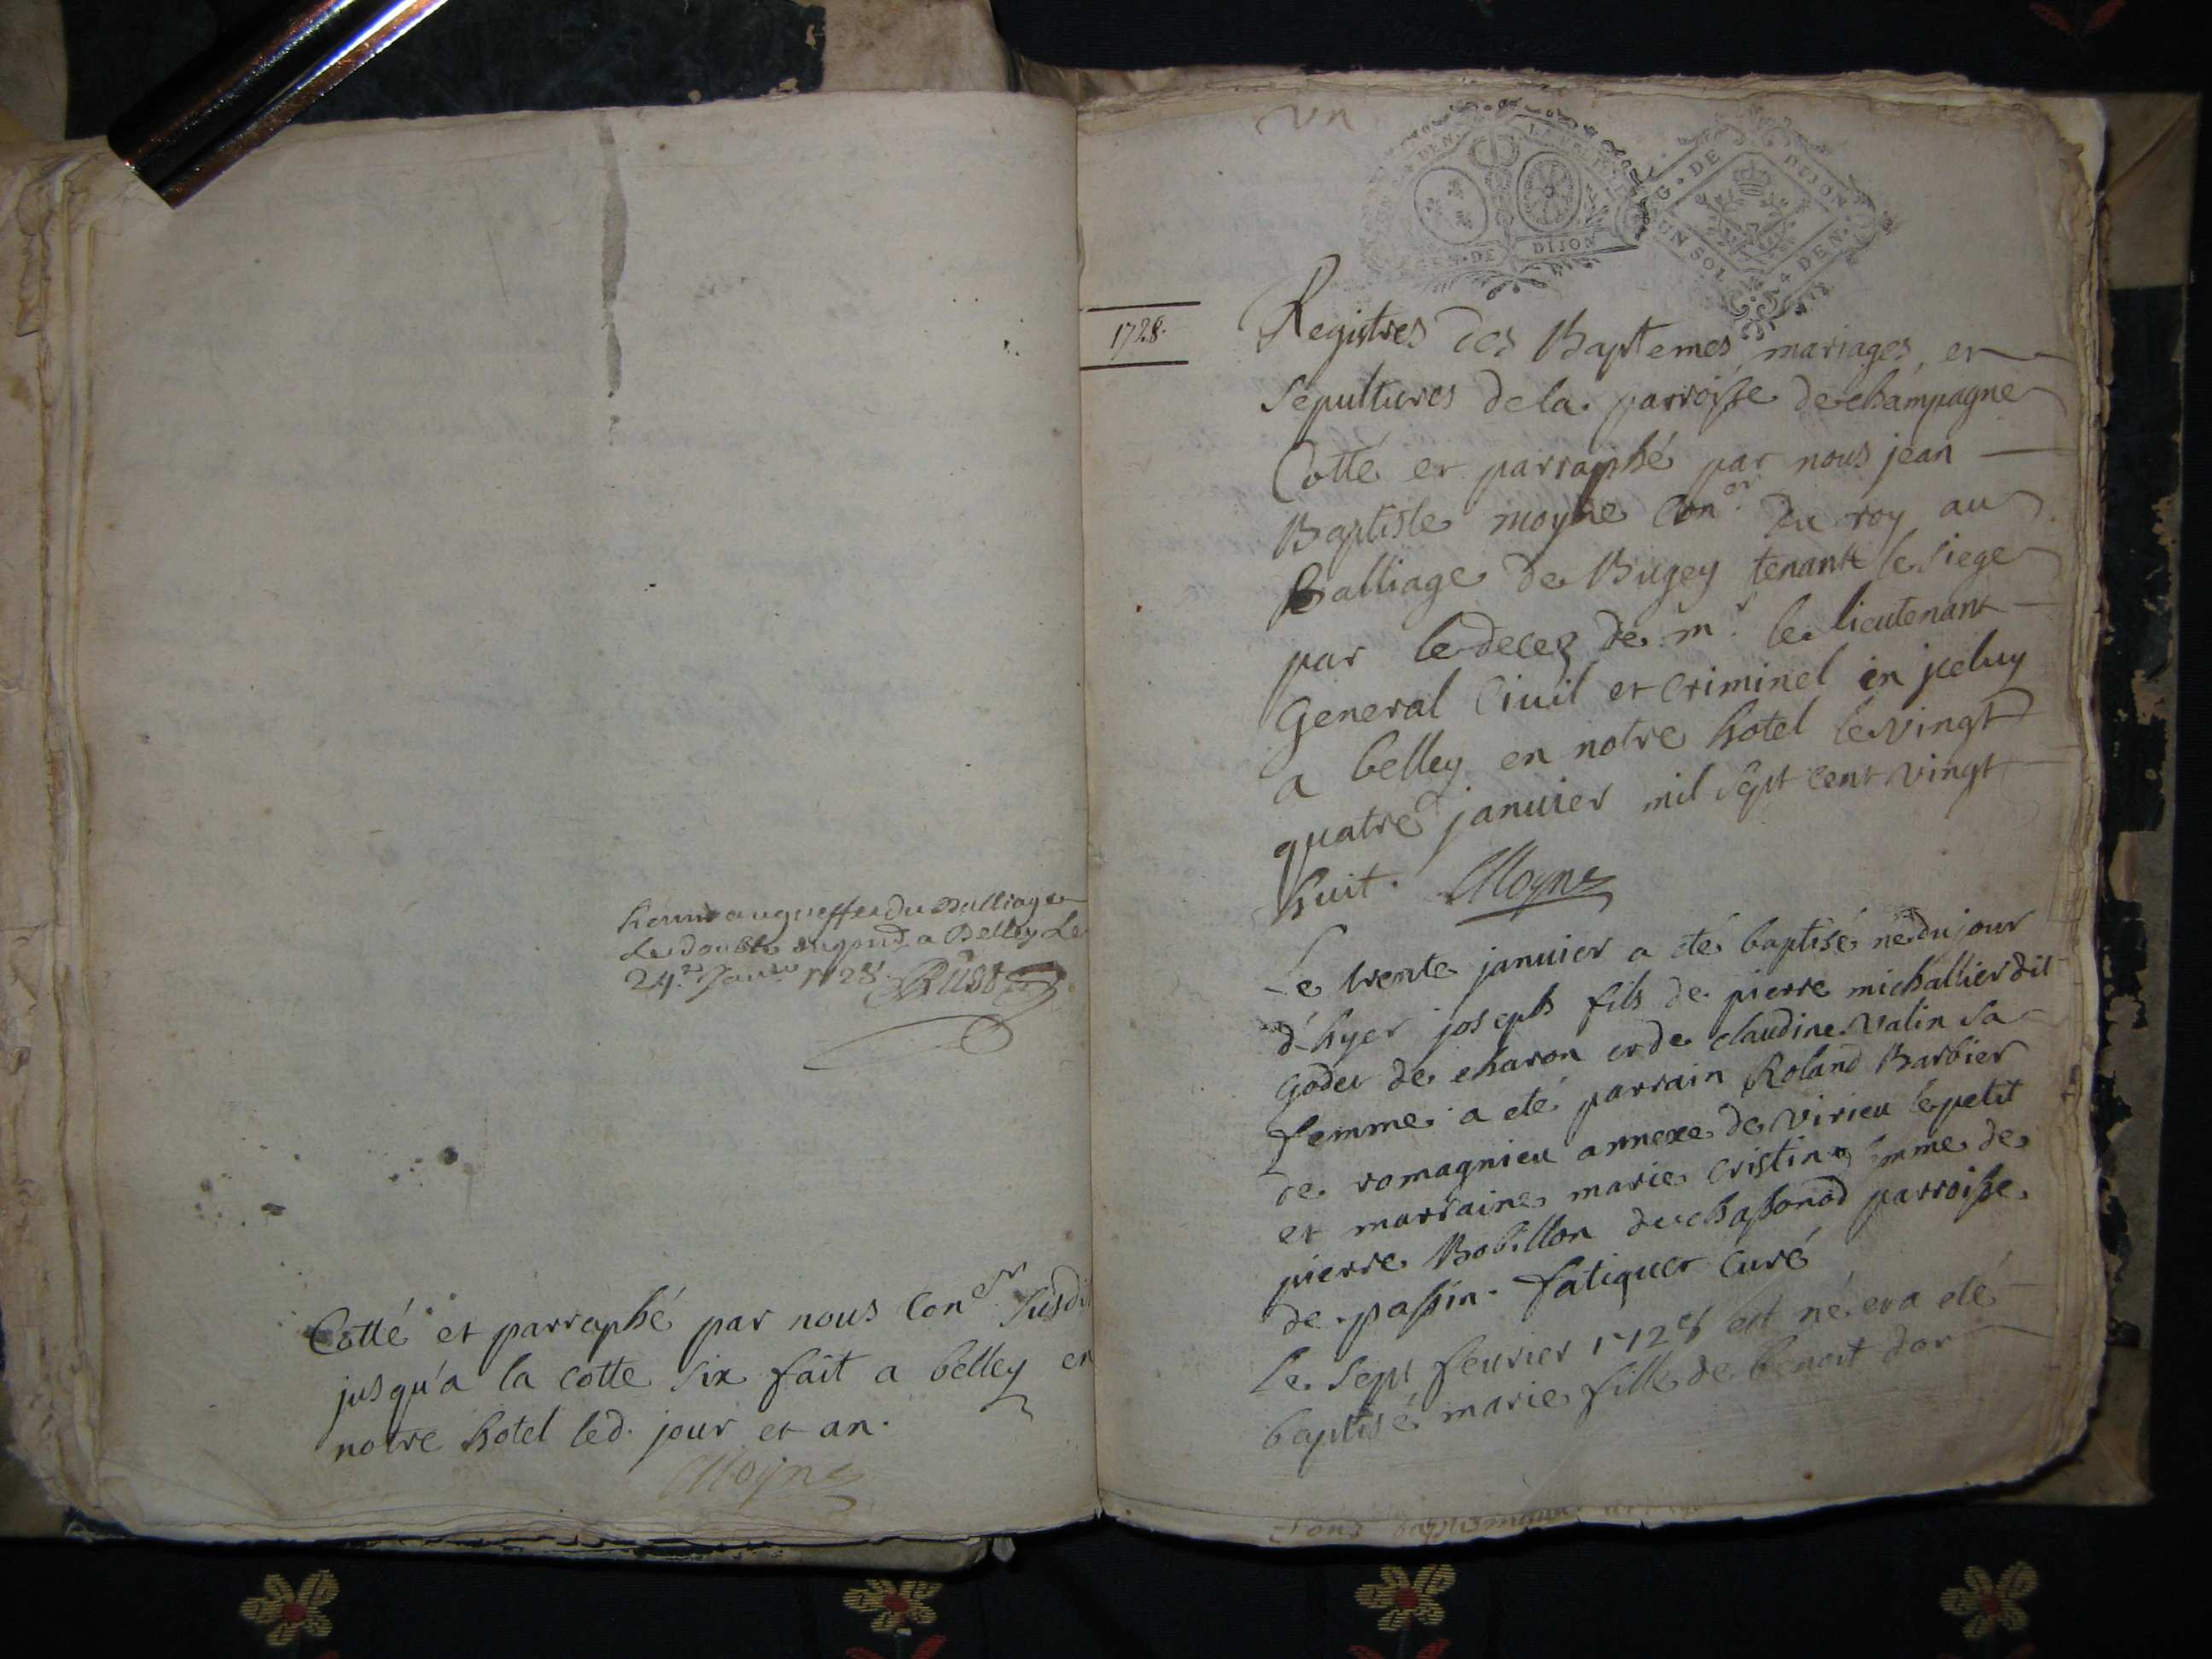 au greffe du Balliage
Le double a Belley Le
24.e Janv. 1728
Cotté et parraphé par nous Con.er susdit
jusqu'a la cotte six fait a belley en
notre hotel led. jour et an.
Moyne
un
GEN. DE DIJON
G. DE DIJON
UN SOL 4 DEN.
1728.
Registres des Baptemes mariages et
sepultures de la parroisse de champagne
Cotté et parraphé par nous jean
Baptiste moyne Con.er du roy au
Balliage de Bugey tenant le siege
par le decez de m.r le lieutenant
General Civil et Criminel en jceluy
a belley en notre hotel le vingt
quatre januier mil sept cent vingt
huit. Moyne
Le trente januier a eté baptisé né du jour
d'hyer joseph fils de pierre michallier dit
godet de charon et de claudine valin sa
femme a eté parrain Roland Barbier
de romagnieu annexe de virieu le petit
et marraine marie cristin femme de
pierre Bobillon de chassonod parroisse
de passin. fatiguet curé
Le sept feurier 1728 est né et a eté
baptisé marie fille de benoit dor